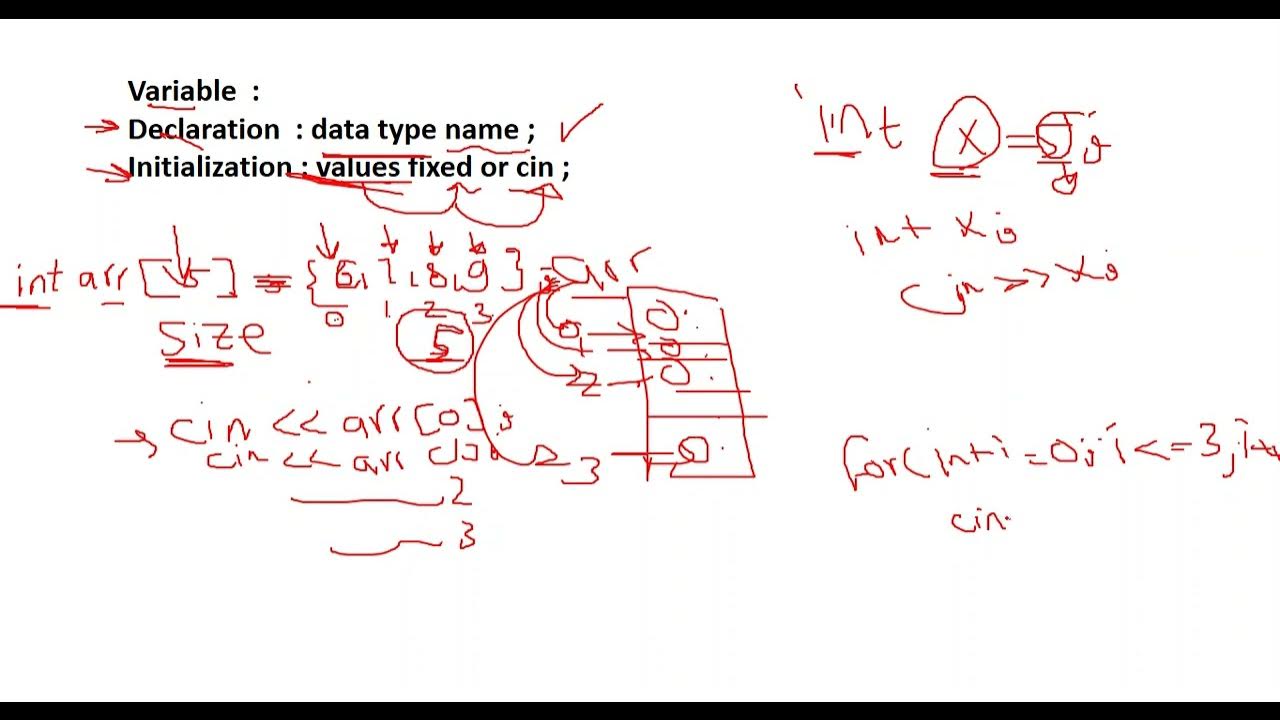 Variable :
Declaration : data type name ;
Initialization : values fixed or cin ;
int x = 5;
int x;
cin >> x;
int arr [ 5 ] = { 6, 7, 8, 9 } ; arr
0 1 2 3
size
5
0 0
1 0
2 0
3 0
cin << arr[0];
cin << arr [1];
2
3
for(int i = 0; i <= 3; i++
cin